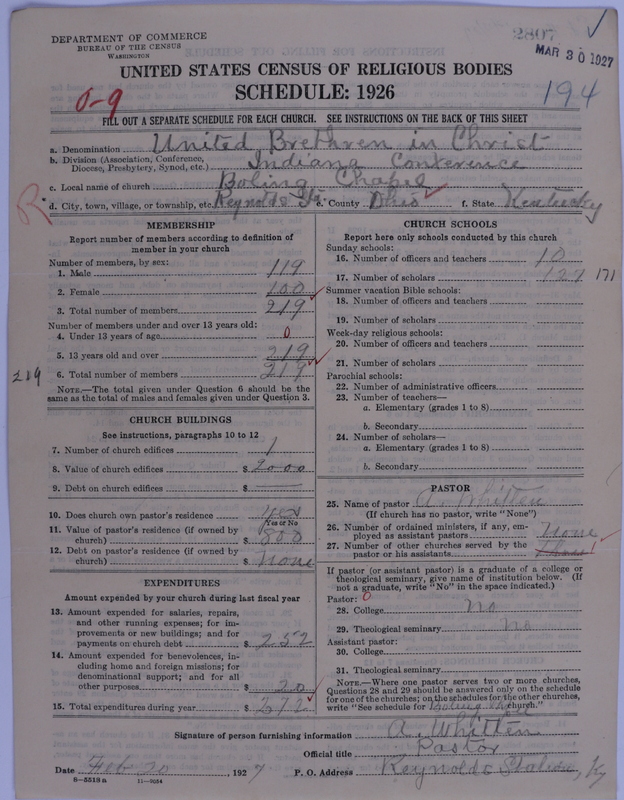 DEPARTMENT OF COMMERCE
BUREAU OF THE CENSUS
WASHINGTON
MAR 30 1927
UNITED STATES CENSUS OF RELIGIOUS BODIES
SCHEDULE: 1926
194
0-9
FILL OUT A SEPARATE SCHEDULE FOR EACH CHURCH. SEE INSTRUCTIONS ON THE BACK OF THIS SHEET
a. Denomination United Brethren in Christ
b. Division (Association, Conference, Diocese, Presbytery, Synod, etc.) Indiana Conference
c. Local name of church Boling Chapel
d. City, town, village, or township, etc. Reynolds Sta e. County Ohio f. State Kentucky
R
MEMBERSHIP
Report number of members according to definition of
member in your church
Number of members, by sex:
1. Male 119
2. Female 100
3. Total number of members 219
Number of members under and over 13 years old:
4. Under 13 years of age 0
5. 13 years old and over 219
6. Total number of members 219
219
NOTE.—The total given under Question 6 should be the
same as the total of males and females given under Question 3.
CHURCH BUILDINGS
See instructions, paragraphs 10 to 12
7. Number of church edifices 1
8. Value of church edifices $ 2000
9. Debt on church edifices $ —
10. Does church own pastor's residence yes
Yes or No
11. Value of pastor's residence (if owned by
church) $ 800
12. Debt on pastor's residence (if owned by
church) $ none
EXPENDITURES
Amount expended by your church during last fiscal year
13. Amount expended for salaries, repairs,
and other running expenses; for im-
provements or new buildings; and for
payments on church debt $ 252
14. Amount expended for benevolences, in-
cluding home and foreign missions; for
denominational support; and for all
other purposes $ 20
15. Total expenditures during year $ 272
CHURCH SCHOOLS
Report here only schools conducted by this church
Sunday schools:
16. Number of officers and teachers 10
17. Number of scholars 127 171
Summer vacation Bible schools:
18. Number of officers and teachers
19. Number of scholars
Week-day religious schools:
20. Number of officers and teachers
21. Number of scholars
Parochial schools:
22. Number of administrative officers
23. Number of teachers—
a. Elementary (grades 1 to 8)
b. Secondary
24. Number of scholars—
a. Elementary (grades 1 to 8)
b. Secondary
PASTOR
25. Name of pastor A. Whitten
(If church has no pastor, write "None")
26. Number of ordained ministers, if any, em-
ployed as assistant pastors None
27. Number of other churches served by the
pastor or his assistants
If pastor (or assistant pastor) is a graduate of a college or
theological seminary, give name of institution below. (If
not a graduate, write "No" in the space indicated.)
Pastor: 0
28. College No
29. Theological seminary No
Assistant pastor:
30. College
31. Theological seminary
NOTE.—Where one pastor serves two or more churches,
Questions 28 and 29 should be answered only on the schedule
for one of the churches; on the schedules for the other churches,
write "See schedule for Boling Chapel church."
Signature of person furnishing information A. Whitten
Official title Pastor
Date Feb 20, 1927 P. O. Address Reynolds Station, Ky
8-5518a 11-9054